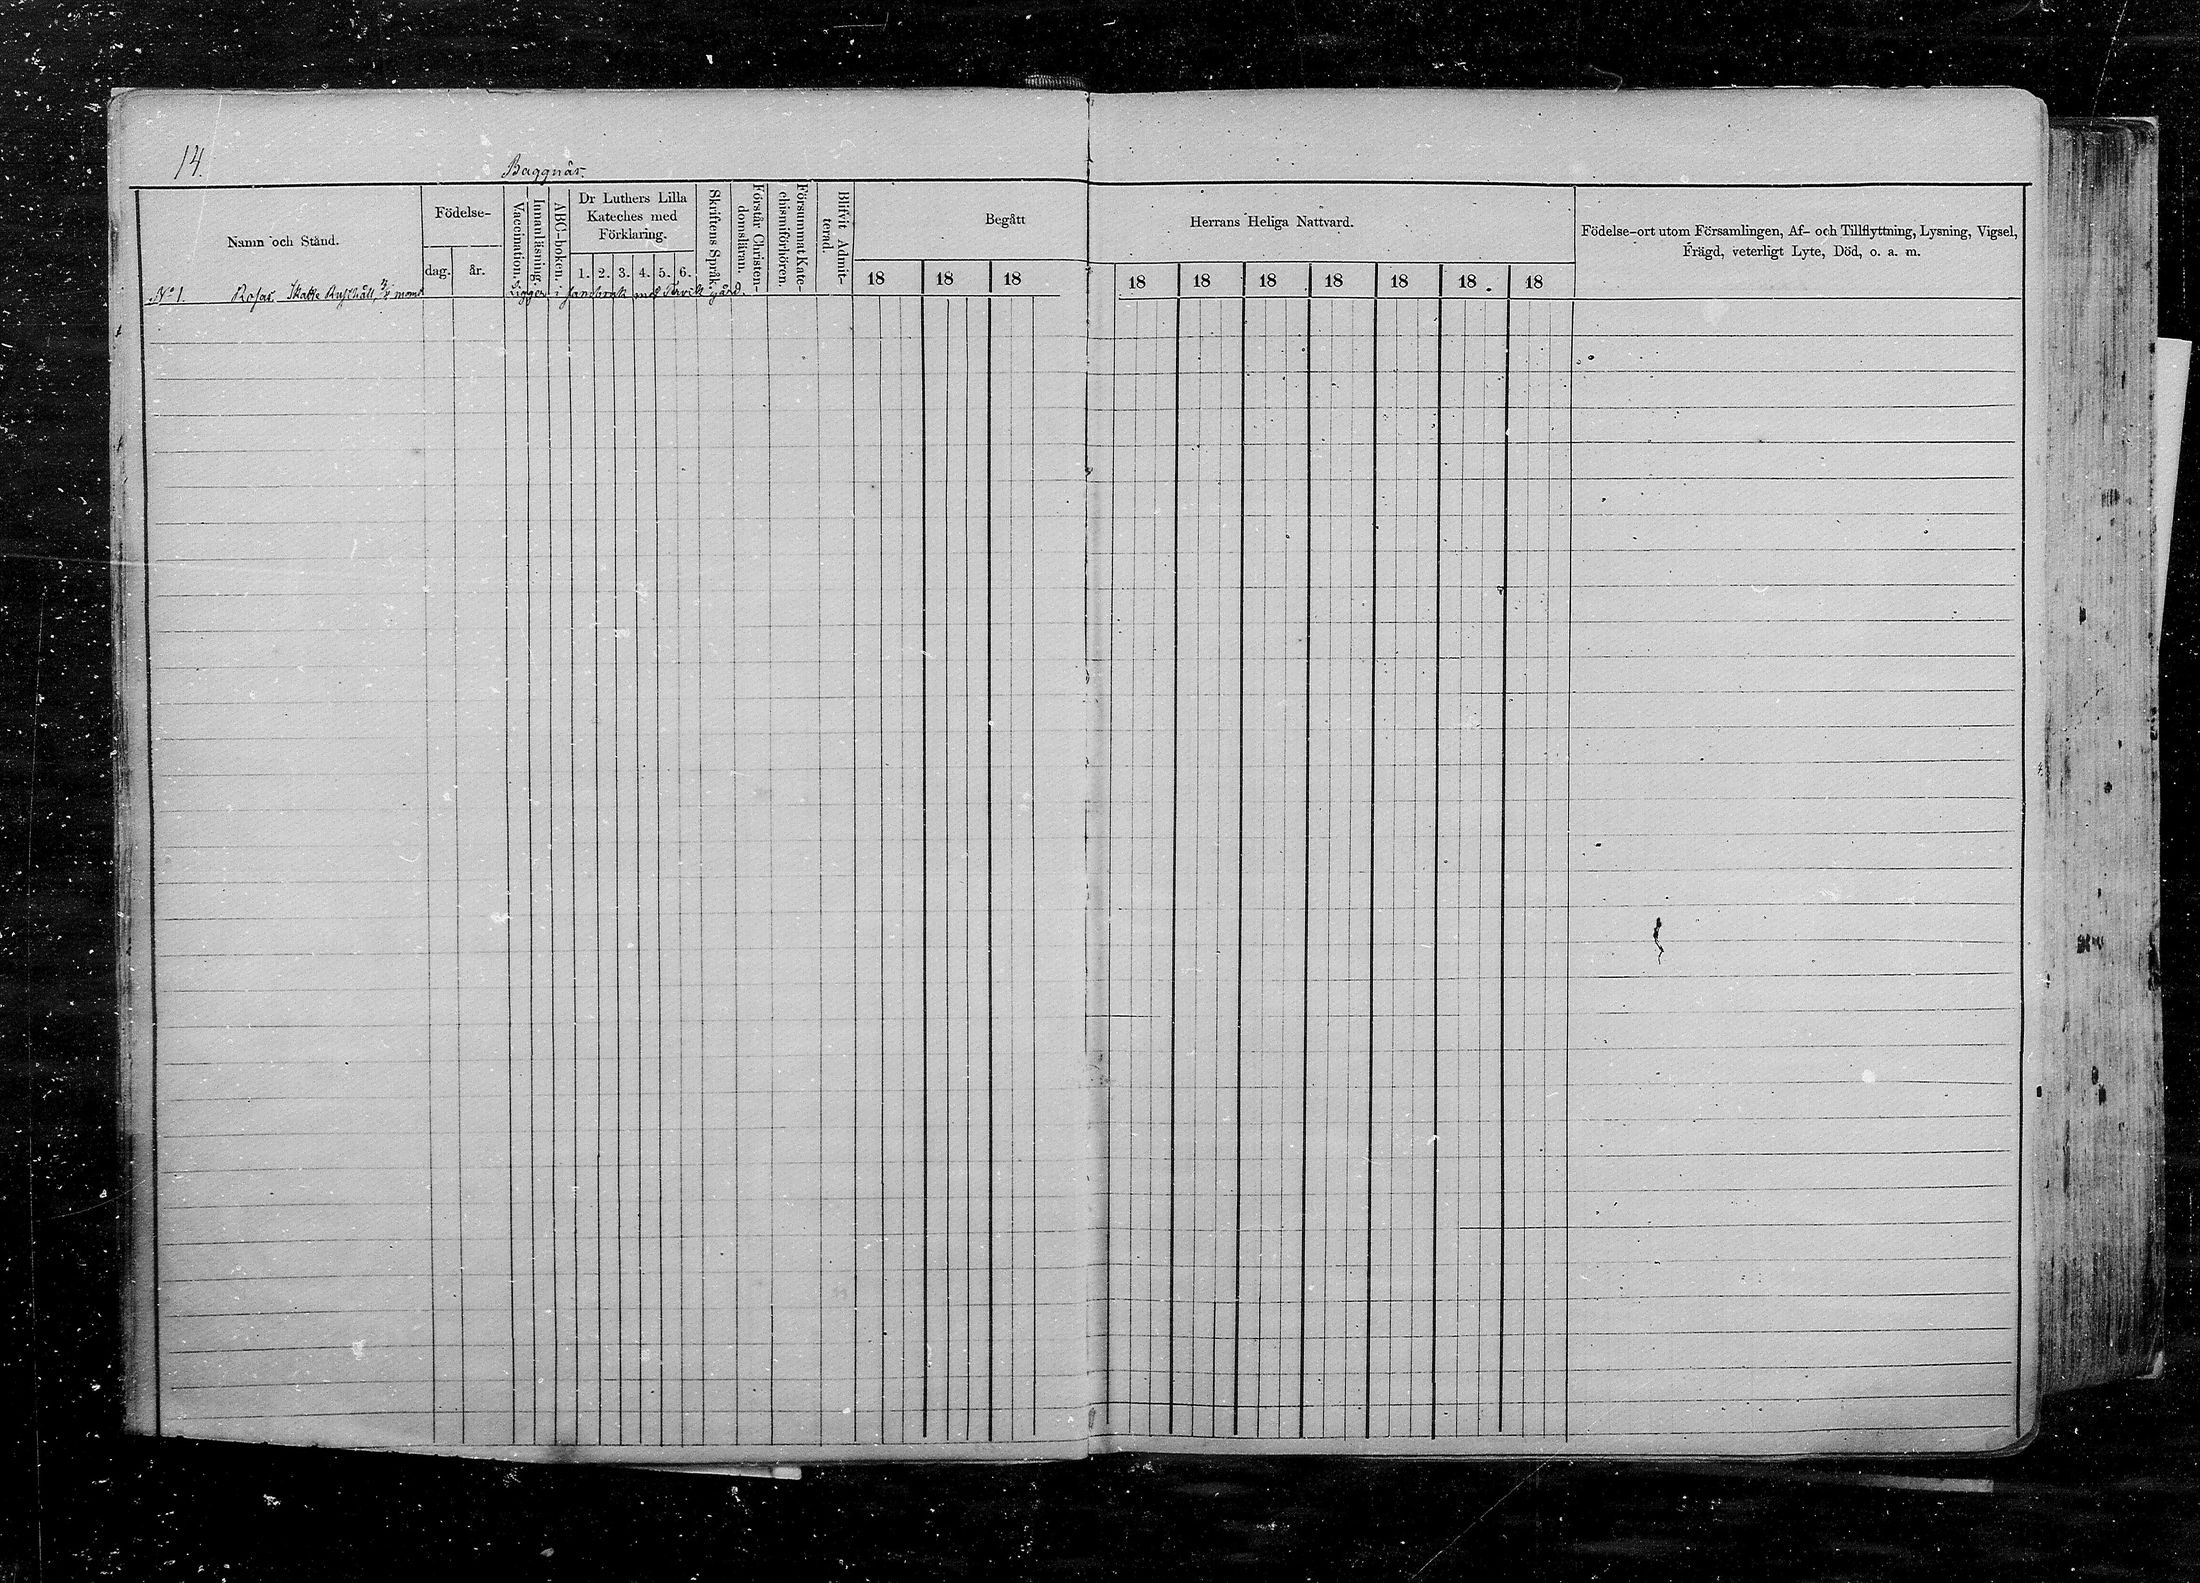 14.
Baggnäs.
Namn och Stånd.
Födelse-
dag.
år.
Vaccination.
Innanläsning.
ABC-boken.
Dr Luthers Lilla
Kateches med
Förklaring.
1. 2. 3. 4. 5. 6.
Skriftens Språk.
Förstår Christen-
domsläran.
Försummat Kate-
chismiförhören.
Blifvit Admit-
terad.
Begått
Herrans Heliga Nattvard.
18 18 18
18 18 18 18 18 18 18
Födelse-ort utom Församlingen, Af- och Tillflyttning, Lysning, Vigsel,
Frägd, veterligt Lyte, Död, o. a. m.
No 1. Rosas. Skatte Rusthåll, Ligger i sambruk med gård.